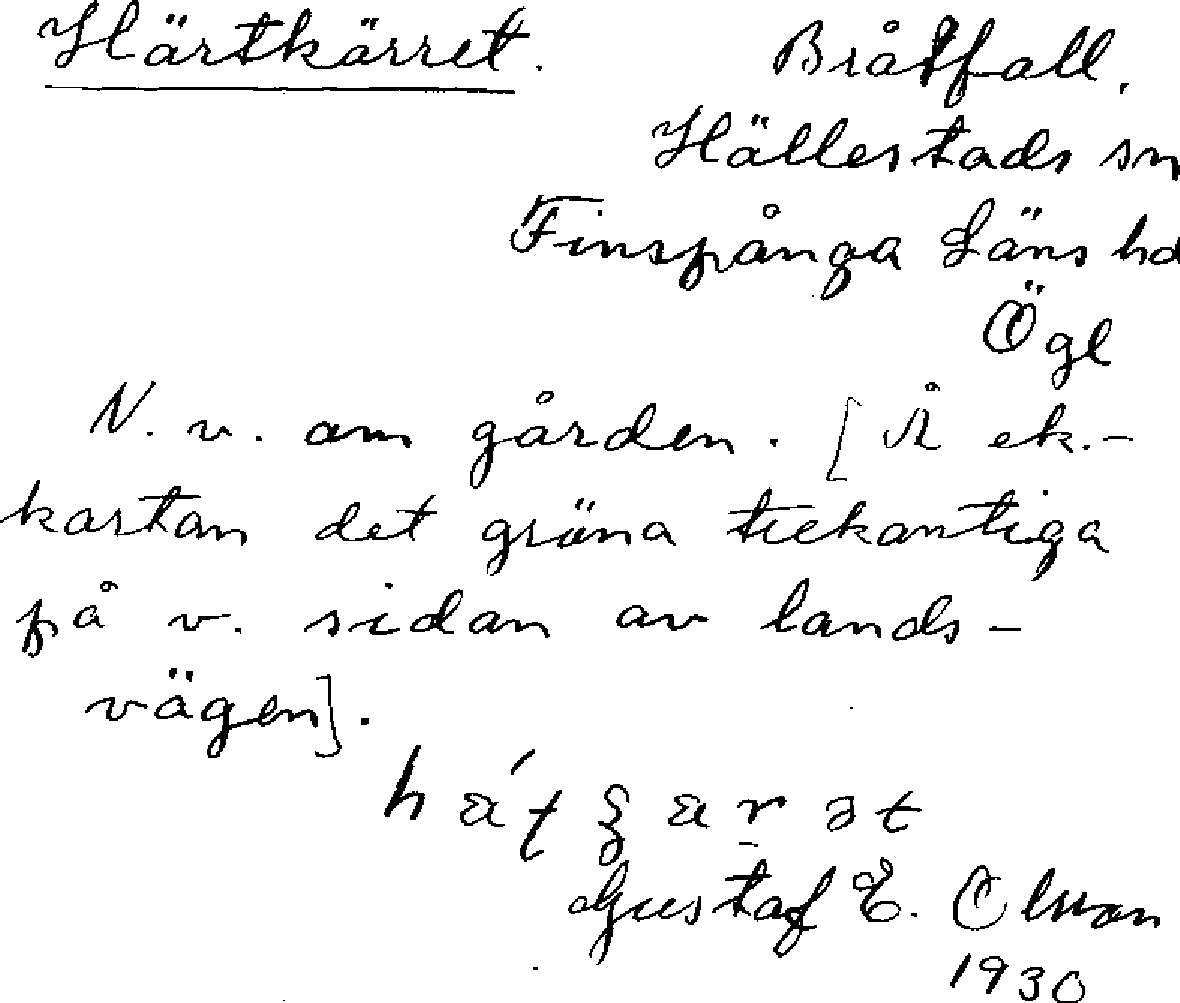 Härtkärret. Bråtfall.
Hällestads sn
Finspånga Läns hd
Ögl
N. v. om gården. [Å ek.-
kartan det gröna trekantiga
på v. sidan av lands-
vägen].
Gustaf E. Olsson
1930